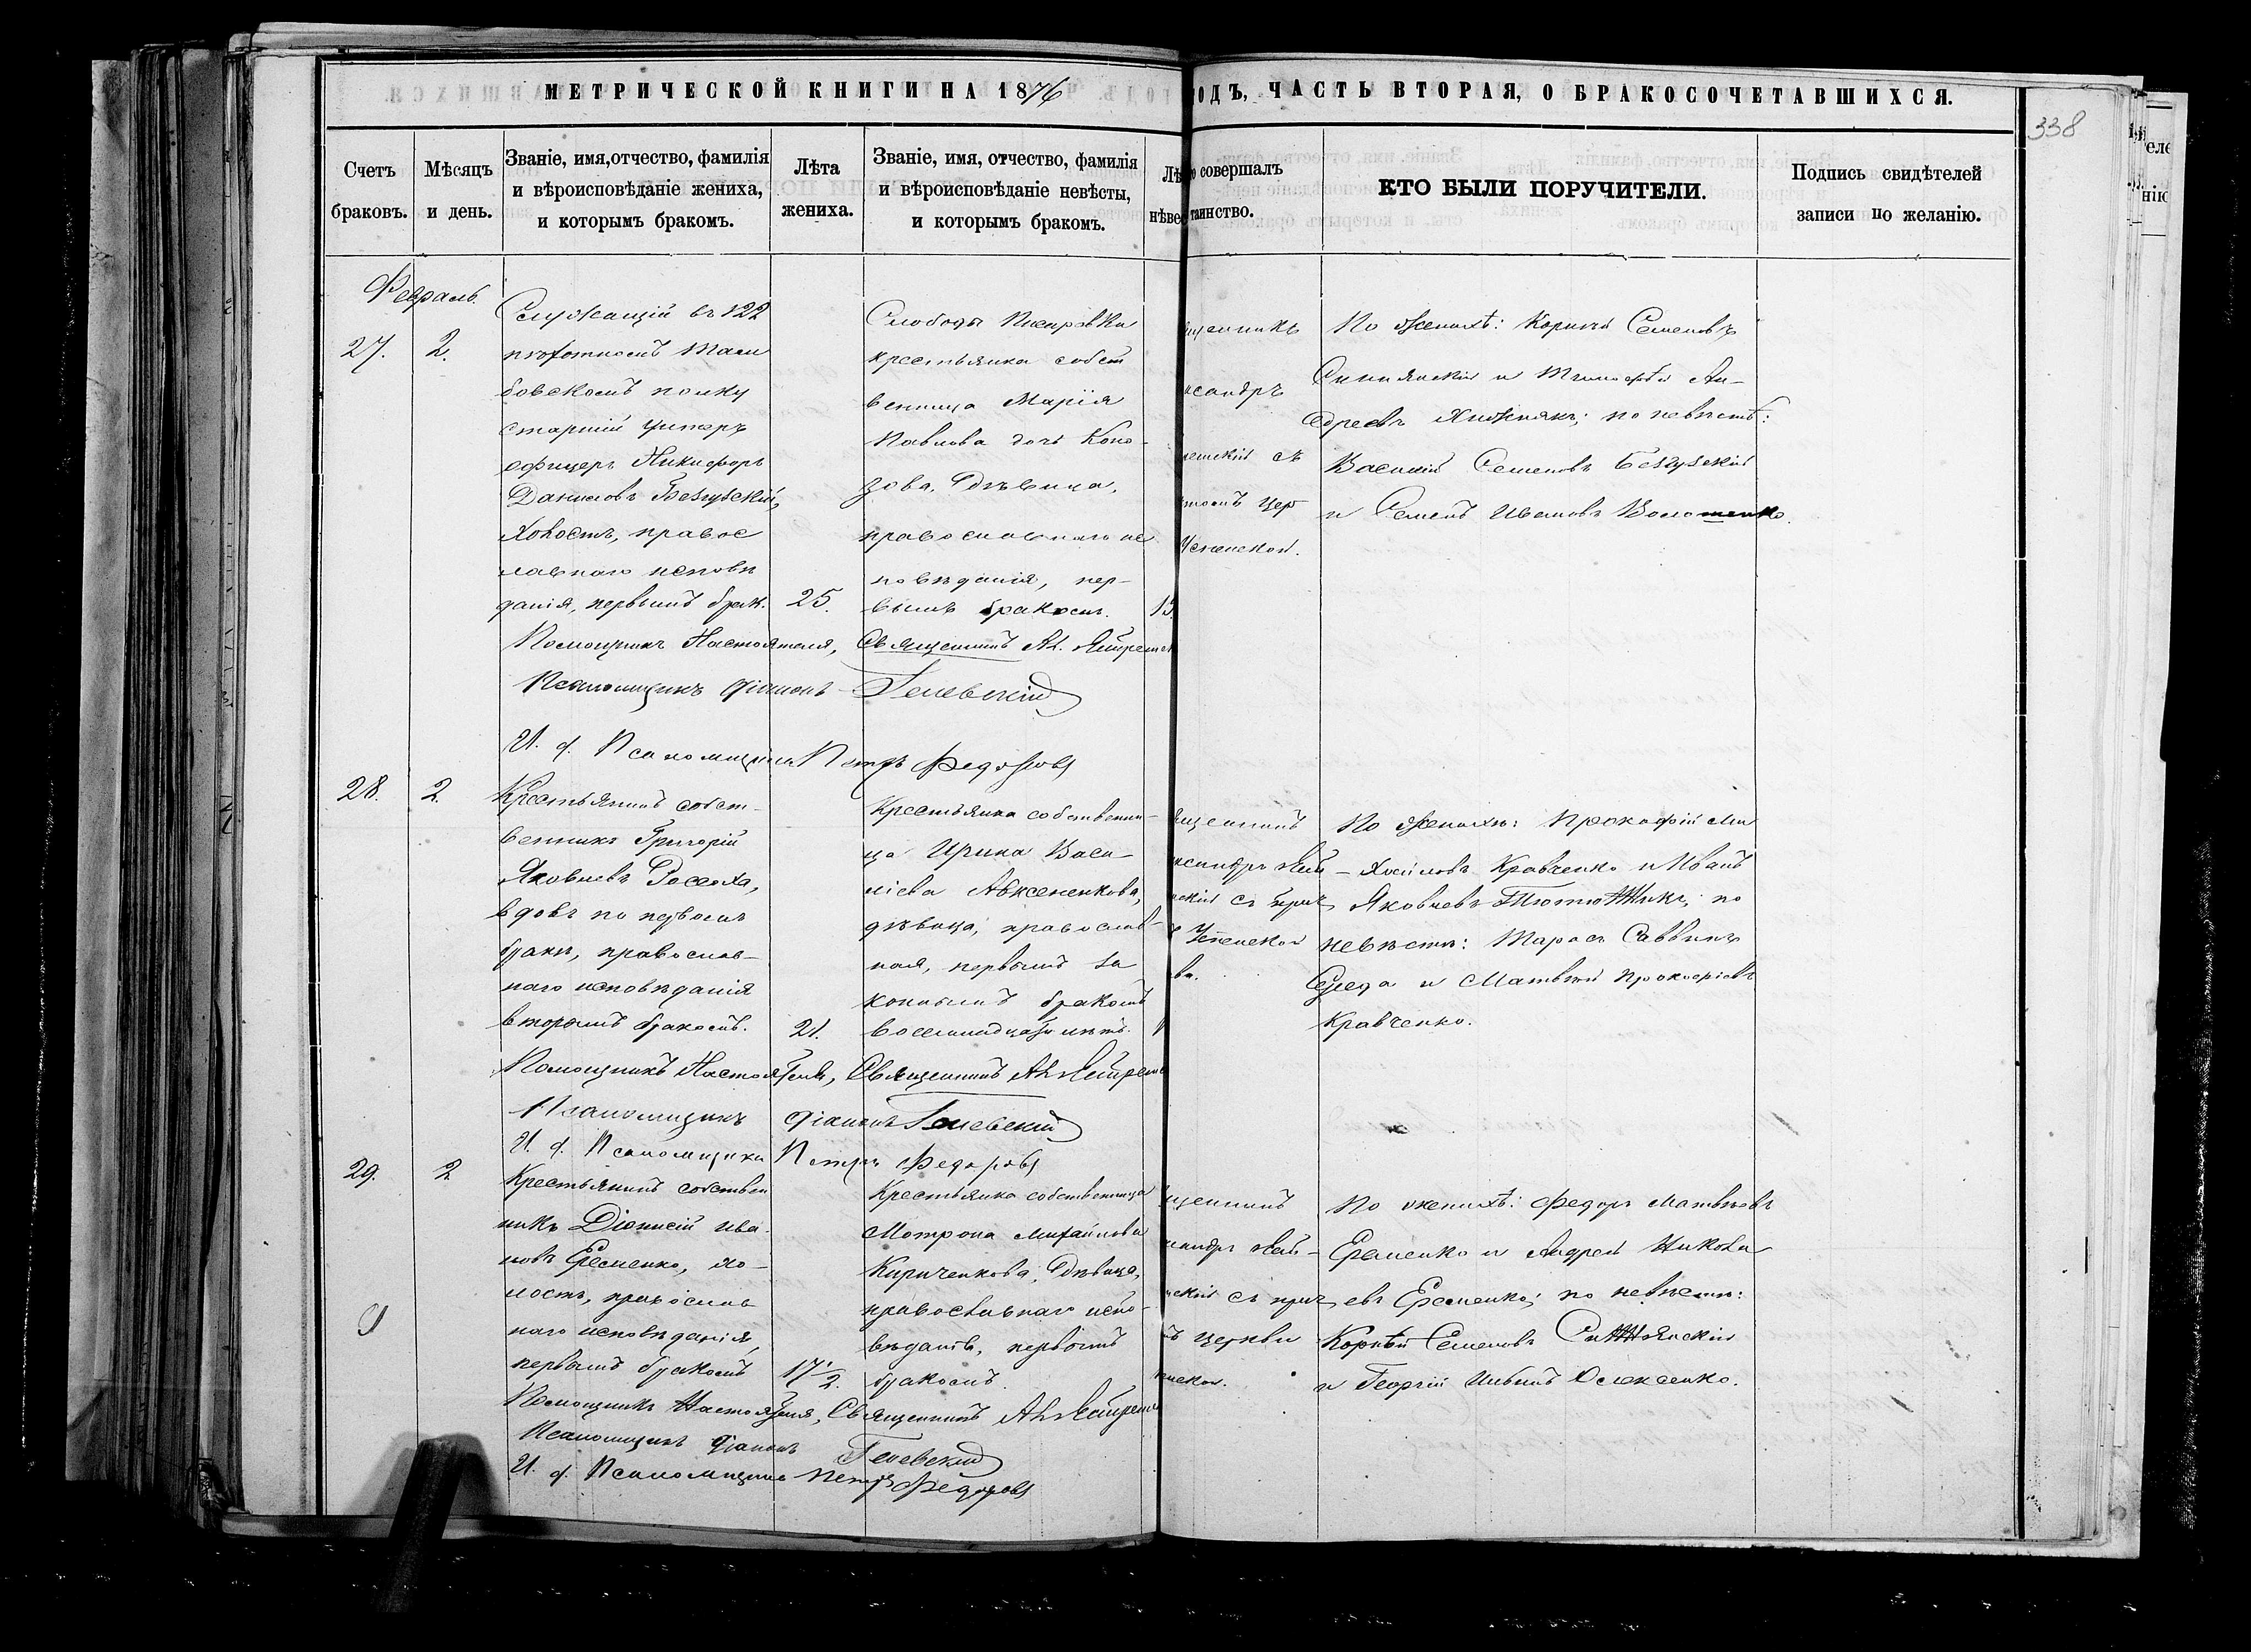 МЕТРИЧЕСКОЙ КНИГИ НА 1876
ОДЪ, ЧАСТЬ ВТОРАЯ, О БРАКОСОЧЕТАВШИХСЯ.
338
Счетъ браковъ.
Мѣсяцъ и день.
Званіе, имя, отчество, фамилія
и вѣроисповѣданіе жениха,
и которымъ бракомъ.
Лѣта
жениха.
Званіе, имя, отчество, фамилія
и вѣроисповѣданіе невѣсты,
и которымъ бракомъ.
Лѣ
нѣвес
о совершалъ
таинство.
КТО БЫЛИ ПОРУЧИТЕЛИ.
Подпись свидѣтелей
записи по желанію.
Февраль.
27.
2.
Служащій въ 122
пѣхотномъ Там
бовскомъ полку
старшій Унтеръ
офицеръ Никифоръ
Даниловъ Беззубскій,
холостъ, правос
лавнаго исповѣ
данія, первымъ брак.
25.
Слободы Писаровки
крестьянка собст
венница Марія
Павлова дочь Коно-
зова, дѣвица,
православнаго ис
повѣданія, пер-
вымъ бракомъ.
щенникъ
ксандръ
съ
томъ цер
Успенской.
По женихѣ: Корнилій Семеновъ
и Тимофѣй Ан-
дреевъ Хижнякъ; по невѣстѣ:
Василій Семеновъ Беззубскій
и Семенъ Ивановъ Волошенко.
Помощникъ Настоятеля, Священникъ Ал.
Псаломщикъ діаконъ Геневскій
И. д. Псаломщика Петръ Федоровъ
28.
2.
Крестьянинъ собст-
венникъ Григорій
Яковлевъ Россоха,
вдовъ по первомъ
бракѣ, православ-
наго исповѣданія
вторымъ бракомъ.
21.
Крестьянка собственни-
ца Ирина Васи-
ліева Авксененкова,
дѣвица, православ-
ная, первымъ за
коннымъ бракомъ
восемнадцати лѣтъ.
ященникъ
ксандръ Лей-
скій съ прич
Успенской
ви.
По женихѣ: Прокофій Ми
хайловъ Кравченко и Иванъ
Яковлевъ Тютюнникъ; по
невѣстѣ: Тарасъ Саввинъ
Середа и Матвѣй Прокофіевъ
Кравченко.
Помощникъ Настоятеля, Священникъ Ал.
Псаломщикъ діаконъ Геневскій
И. д. Псаломщика Петръ Федоровъ
29.
2
Крестьянинъ собствен
никъ Діонисій Ива-
новъ Еременко, хо-
лостъ, православ
наго исповѣданія,
первымъ бракомъ
17 1/2.
Крестьянка собственница
Мотрона Михайлова
Кириченкова, дѣвица,
православнаго испо-
вѣданія, первымъ
бракомъ.
щенникъ
ксандръ Лей-
скій съ прич
ъ церкви
По женихѣ: Федоръ Матвѣевъ
Еременко и Андрей Никола
евъ Еременко; по невѣстѣ:
Корнѣй Семеновъ
и Георгій Олексенко.
Помощникъ Настоятеля, Священникъ Ал.
Псаломщикъ діаконъ Геневскій
И. д. Псаломщика Петръ Федоровъ